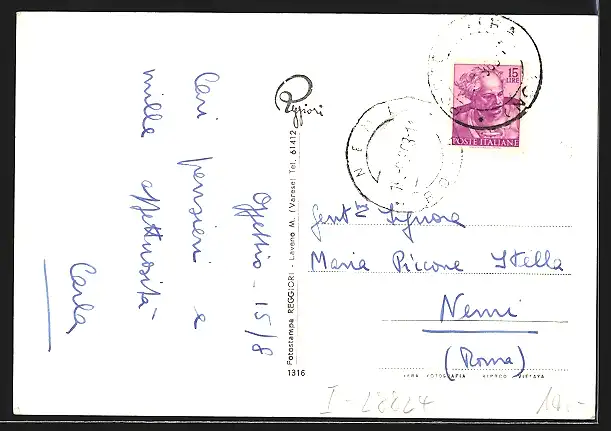 Oggebbio - 15/8
Cari pensieri e
mille affettuosità
Carla
Reggiori
Fotostampa REGGIORI - Laveno M. (Varese) Tel. 61412
1316
15
LIRE
POSTE ITALIANE
NEMI
Gent.ma Signora
Maria Piccone Stella
Nemi
(Roma)
VERA FOTOGRAFIA RIPROD. VIETATA
I-28824
10.-